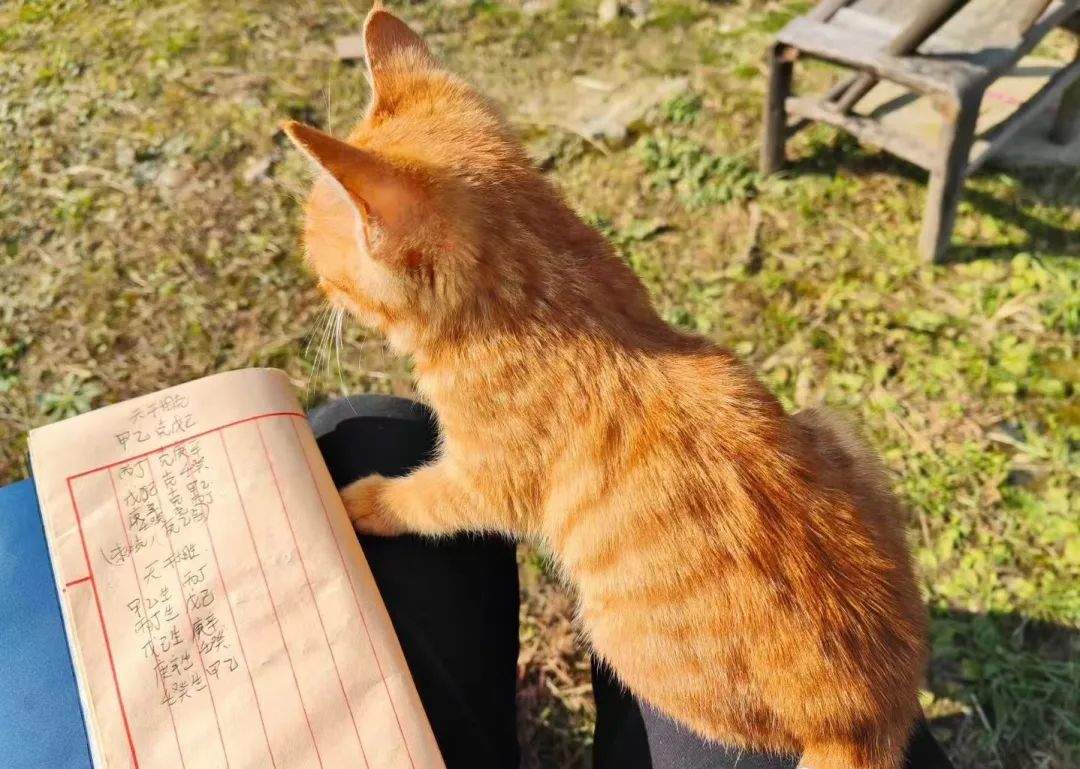 天干相克
甲乙克戊己
丙丁克庚辛
戊己克壬癸
庚辛克甲乙
壬癸克丙丁
天干相生
甲乙生丙丁
丙丁生戊己
戊己生庚辛
庚辛生壬癸
壬癸生甲乙